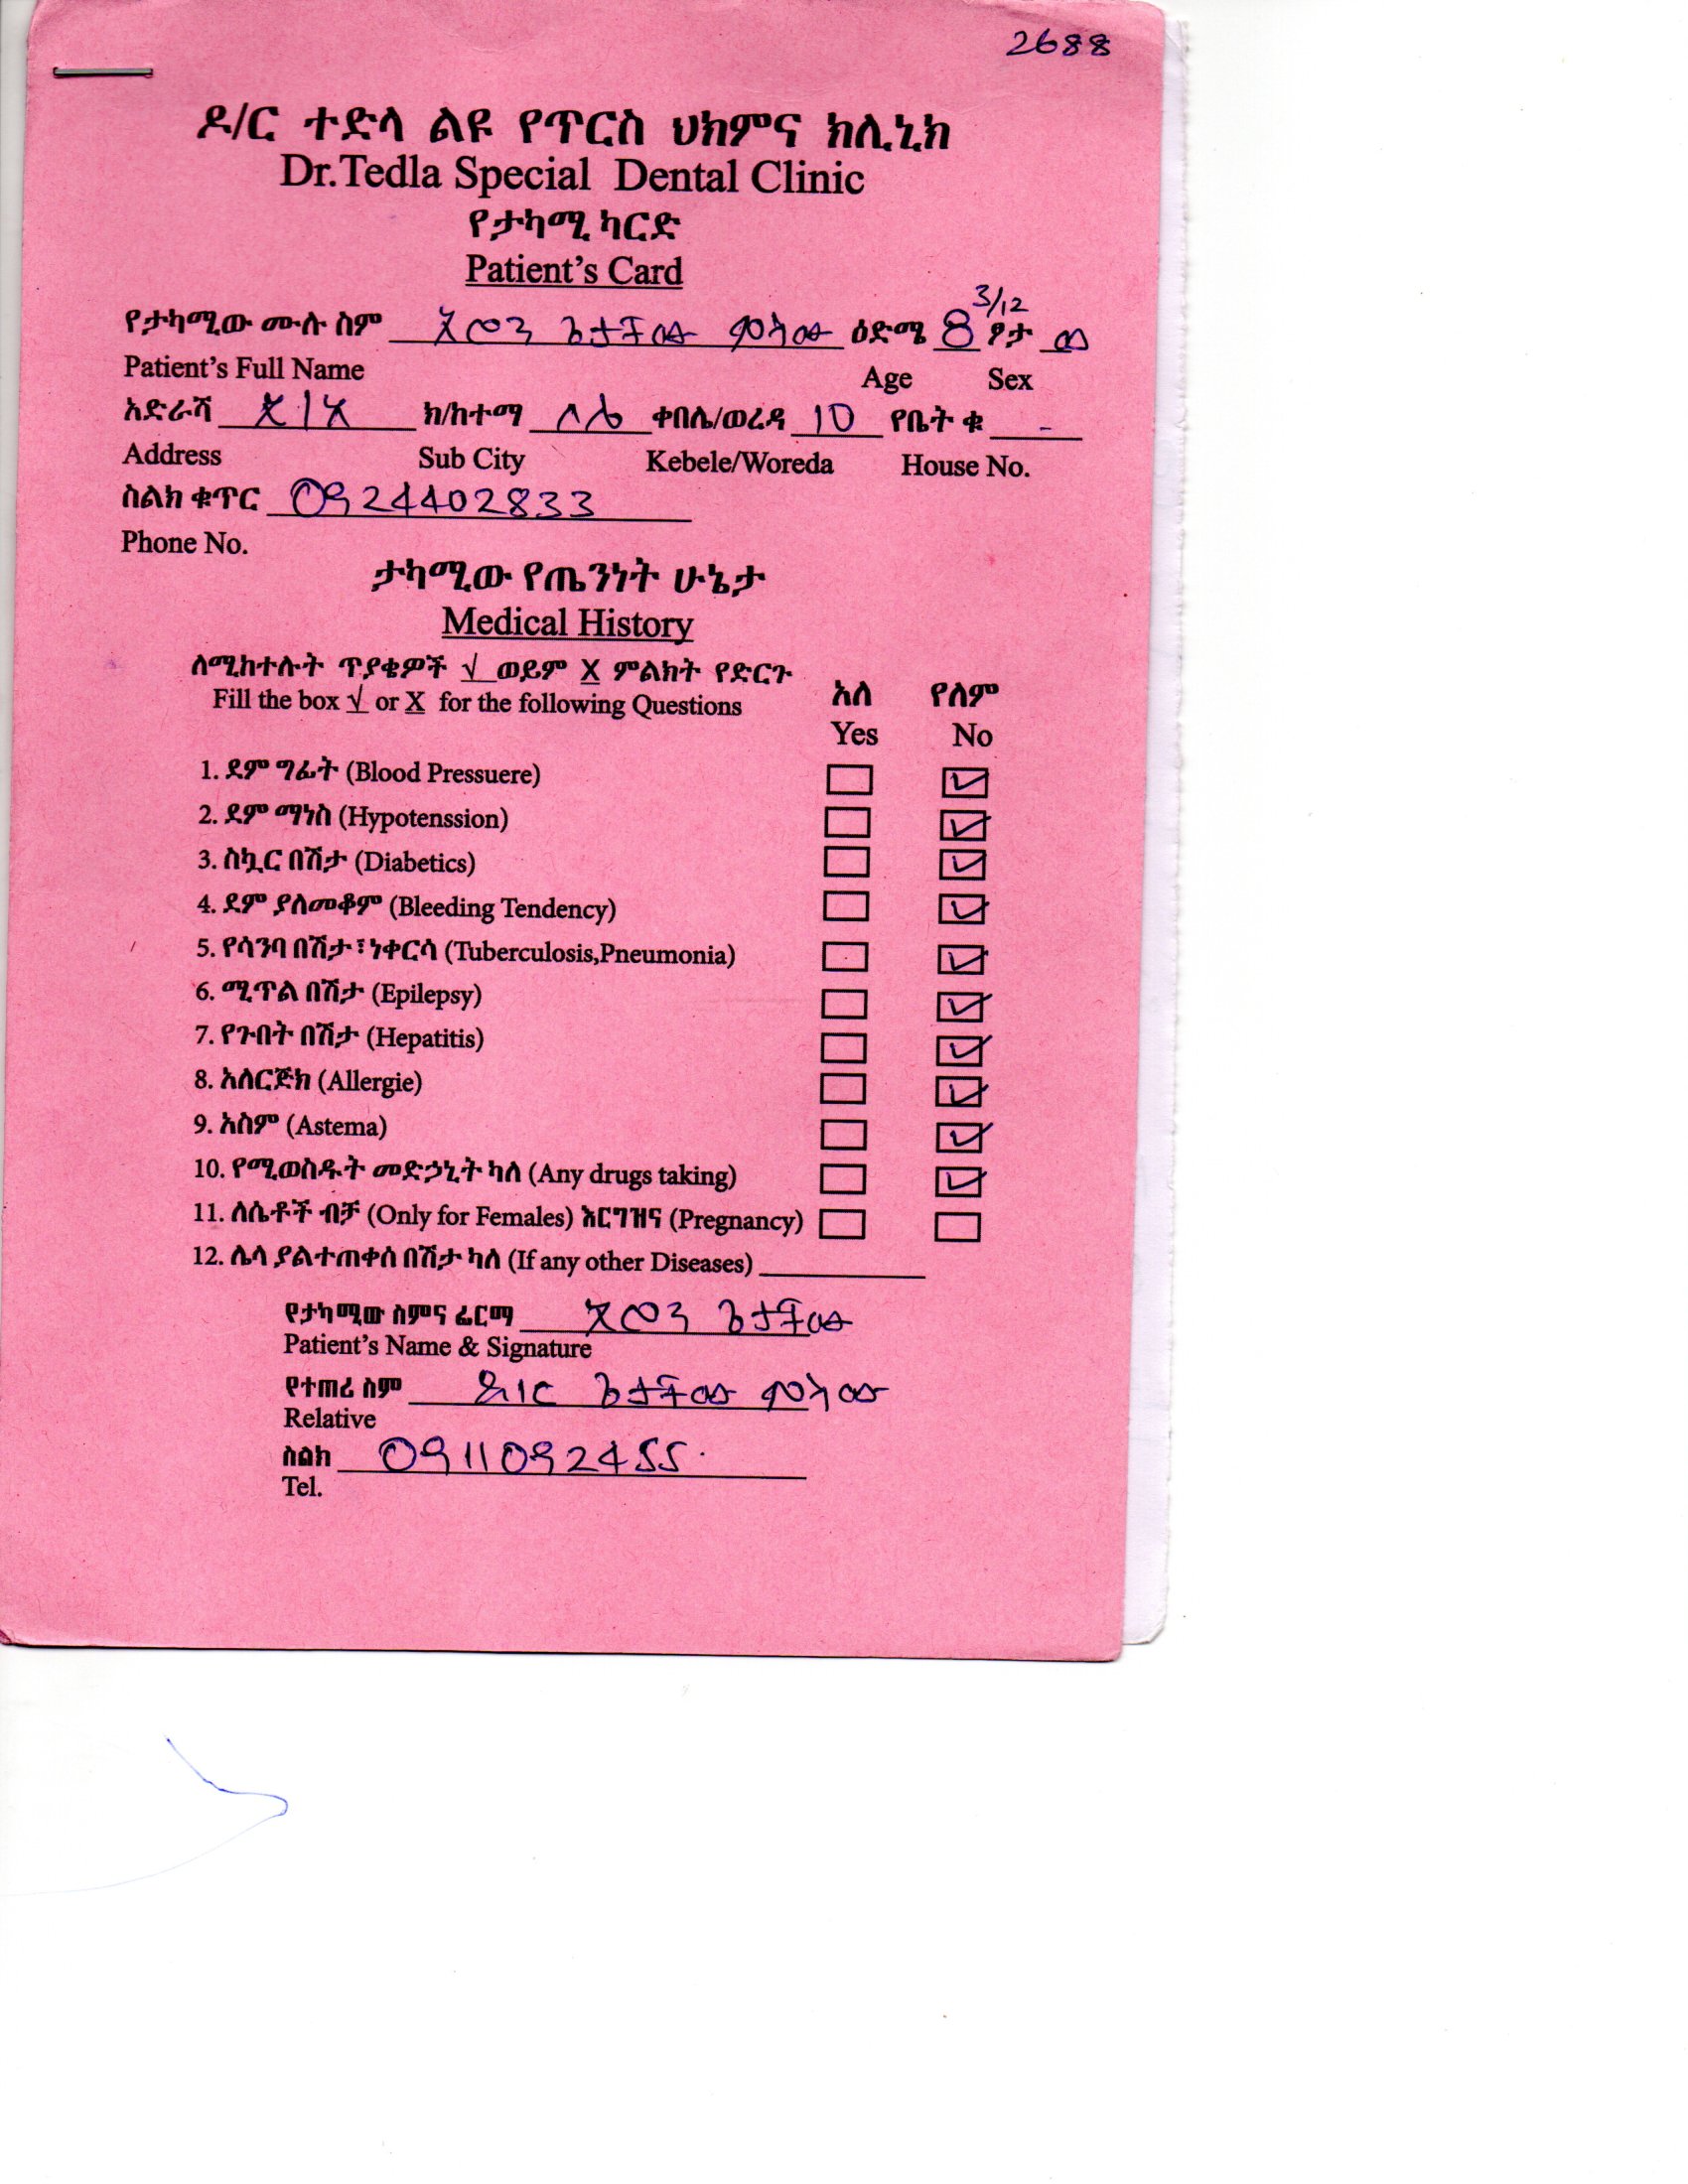 2688
ዶ/ር ተድላ ልዩ የጥርስ ህክምና ክሊኒክ
Dr.Tedla Special Dental Clinic
የታካሚ ካርድ
Patient's Card
3/12
የታካሚው ሙሉ ስም ጌታቸው ምላሱ ዕድሜ 8 ፆታ ወ
Patient's Full Name Age Sex
አድራሻ ክ/ከተማ ቀበሌ/ወረዳ 10 የቤት ቁ -
Address Sub City Kebele/Woreda House No.
ስልክ ቁጥር 0924402833
Phone No.
ታካሚው የጤንነት ሁኔታ
Medical History
ለሚከተሉት ጥያቄዎች √ ወይም X ምልክት የድርጉ
Fill the box √ or X for the following Questions
አለ የለም
Yes No
1. ደም ግፊት (Blood Pressuere)
2. ደም ማነስ (Hypotenssion)
3. ስኳር በሽታ (Diabetics)
4. ደም ያለመቆም (Bleeding Tendency)
5. የሳንባ በሽታ፣ነቀርሳ (Tuberculosis,Pneumonia)
6. ሚጥል በሽታ (Epilepsy)
7. የጉበት በሽታ (Hepatitis)
8. አለርጅክ (Allergie)
9. አስም (Astema)
10. የሚወስዱት መድኃኒት ካለ (Any drugs taking)
11. ለሴቶች ብቻ (Only for Females) እርግዝና (Pregnancy)
12. ሌላ ያልተጠቀሰ በሽታ ካለ (If any other Diseases)
የታካሚው ስምና ፊርማ ጌታቸው
Patient's Name & Signature
የተጠሪ ስም ጌታቸው
Relative
ስልክ 0911092455
Tel.